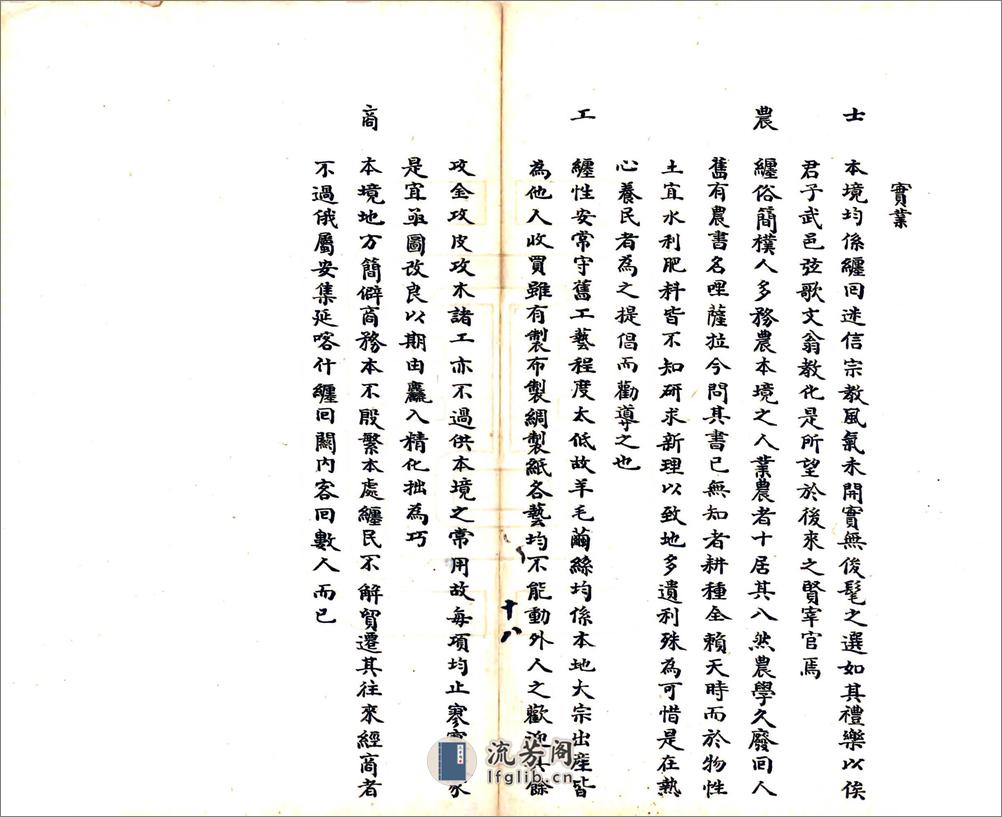 實業
士 本境均係纏回迷信宗教風氣未開實無俊髦之選如其禮樂以俟
君子武邑弦歌文翁教化是所望於後來之賢宰官焉
農 纏俗簡樸人多務農本境之人業農者十居其八然農學久廢回人
舊有農書名哩薩拉今問其書已無知者耕種全賴天時而於物性
土宜水利肥料皆不知研求新理以致地多遺利殊為可惜是在熱
心養民者為之提倡而勸導之也
工 纏性安常守舊工藝程度太低故羊毛繭絲均係本地大宗出産皆
為他人收買雖有製布製綢製紙各藝均不能動外人之歡迎其餘
十八
攻金攻皮攻木諸工亦不過供本境之常用故每項均止寥寥家
是宜亟圖改良以期由麤入精化拙為巧
商 本境地方簡僻商務本不殷繁本處纏民不解貿遷其往來經商者
不過俄屬安集延喀什纏回關內客回數人而已
流芳阁
lfglib.cn